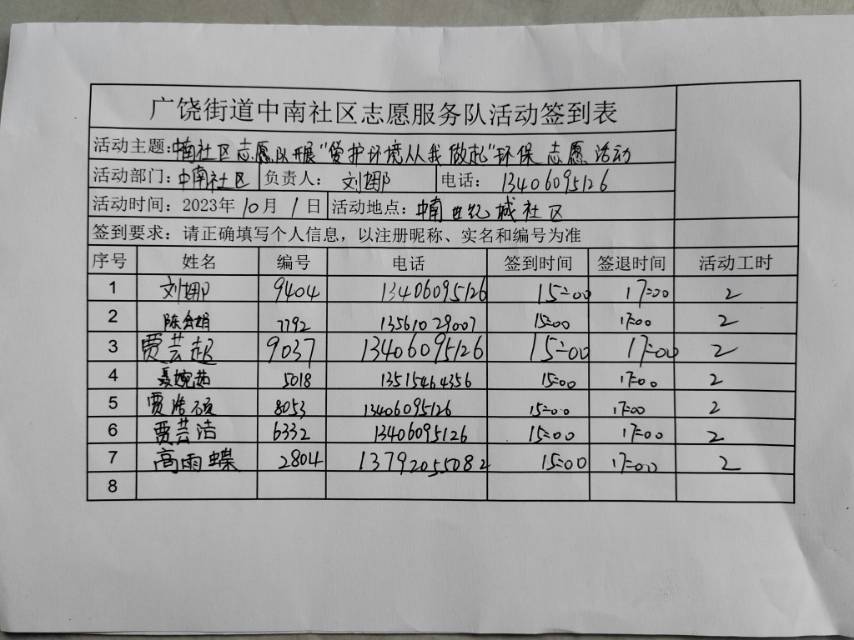 广饶街道中南社区志愿服务队活动签到表
活动主题：中南社区志愿队开展“爱护环境从我做起”环保志愿活动
活动部门：中南社区 负责人：刘娜 电话：13406095126
活动时间：2023年10月1日 活动地点：中南世纪城社区
签到要求：请正确填写个人信息，以注册昵称、实名和编号为准
序号 姓名 编号 电话 签到时间 签退时间 活动工时
1 刘娜 9404 13406095126 15:00 17:00 2
2 7792 13561029007 15:00 17:00 2
3 贾芸起 9037 13406095126 15:00 17:00 2
4 聂婉茹 5018 13515464356 15:00 17:00 2
5 贾浩硕 8053 13406095126 15:00 17:00 2
6 贾芸洁 6332 13406095126 15:00 17:00 2
7 高雨蝶 2804 13792055082 15:00 17:00 2
8